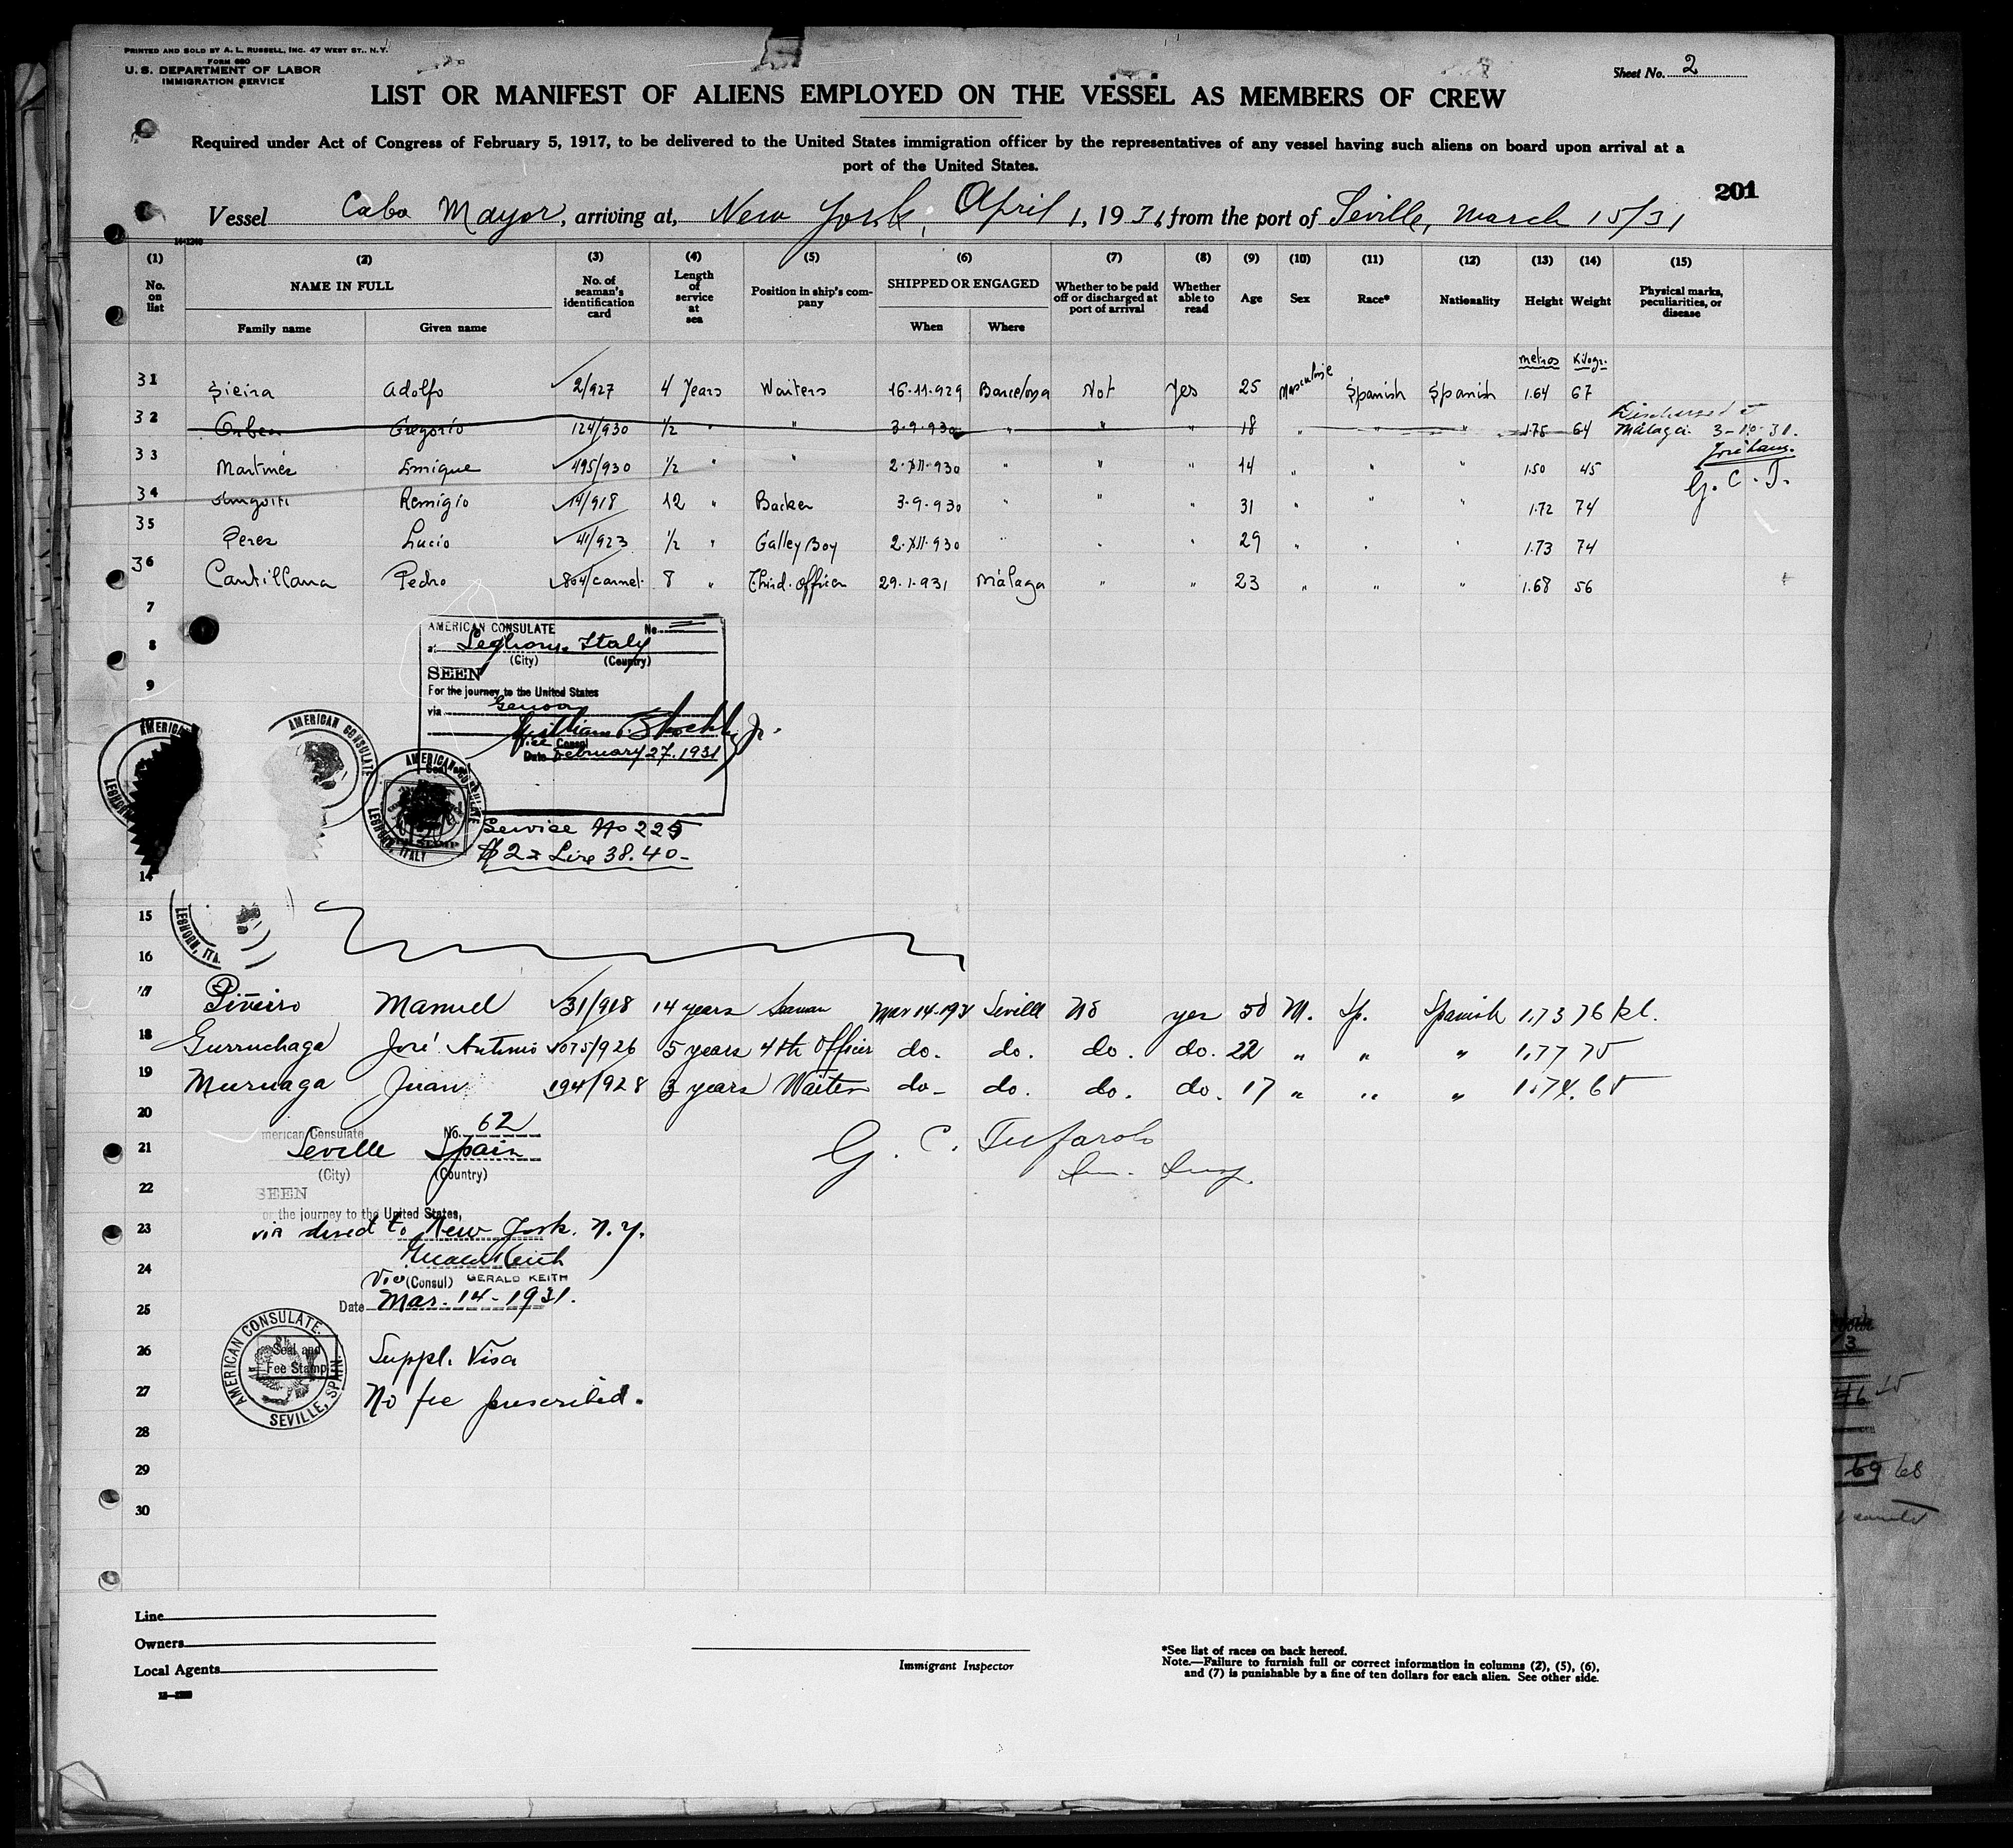 PRINTED AND SOLD BY A. L. RUSSELL, INC. 47 WEST ST., N.Y.
FORM 680
U. S. DEPARTMENT OF LABOR
IMMIGRATION SERVICE
Sheet No. 2
LIST OR MANIFEST OF ALIENS EMPLOYED ON THE VESSEL AS MEMBERS OF CREW
Required under Act of Congress of February 5, 1917, to be delivered to the United States immigration officer by the representatives of any vessel having such aliens on board upon arrival at a
port of the United States.
201
Vessel Cabo Mayor, arriving at, New York, April 1, 1931, from the port of Seville, March 15/31
14-1240
(1) (2) (3) (4) (5) (6) (7) (8) (9) (10) (11) (12) (13) (14) (15)
No. on list NAME IN FULL Family name Given name No. of seaman's identification card Length of service at sea Position in ship's company SHIPPED OR ENGAGED When Where Whether to be paid off or discharged at port of arrival Whether able to read Age Sex Race* Nationality Height Weight Physical marks, peculiarities, or disease
metros Kilogr.
31 Sieira Adolfo 2/927 4 Years Waiters 16-11-929 Barcelona Not Yes 25 Masculine Spanish Spanish 1.64 67
32 Gregorio 124/930 1/2 " " 3-9-930 " " " 18 " " " 1.75 64 Discharged at Málaga 3-10-31.
33 Martinez Emique 495/930 1/2 " " 2-XII-930 " " " 14 " " " 1.50 45
G. C. T.
34 Remigio 14/918 12 " Backer 3-9-930 " " " 31 " " " 1.72 74
35 Perez Lucio 41/923 1/2 " Galley Boy 2-XII-930 " " " 29 " " " 1.73 74
36 Cantillana Pedro 804/carnet 8 " Third officer 29-1-931 Málaga " " 23 " " " 1.68 56
7
8
9
AMERICAN CONSULATE No.
at Leghorn, Italy
(City) (Country)
SEEN
For the journey to the United States
via Genoa
Vice Consul
Date February 27, 1931
AMERICAN CONSULATE
LEGHORN, ITALY
Service No 225
$2 = Lire 38.40-
14
15
LEGHORN, ITA
16
17 Piñeiro Manuel 31/918 14 years Seaman Mar 14-1931 Seville No yes 50 M. Sp. Spanish 1.73 76 kl.
18 Gurruchaga José Antonio 1075/926 5 years 4th officer do. do. do. do. 22 " " " 1.77 75
19 Muruaga Juan 194/928 3 years Waiter do- do. do. do. 17 " " " 1.74. 65
20
merican Consulate No. 62
21 Seville Spain
(City) (Country)
G. C. Tufarolo
22 SEEN
or the journey to the United States,
23 via direct to New York. N.Y.
24
Vice (Consul) GERALD KEITH
25 Date Mar. 14-1931.
AMERICAN CONSULATE.
SEVILLE, SPAIN.
Seal and
Fee Stamp
26 Suppl. Visa
27 No fee prescribed.
28
29
30
Line
Owners
Local Agents
Immigrant Inspector
*See list of races on back hereof.
Note.—Failure to furnish full or correct information in columns (2), (5), (6),
and (7) is punishable by a fine of ten dollars for each alien. See other side.